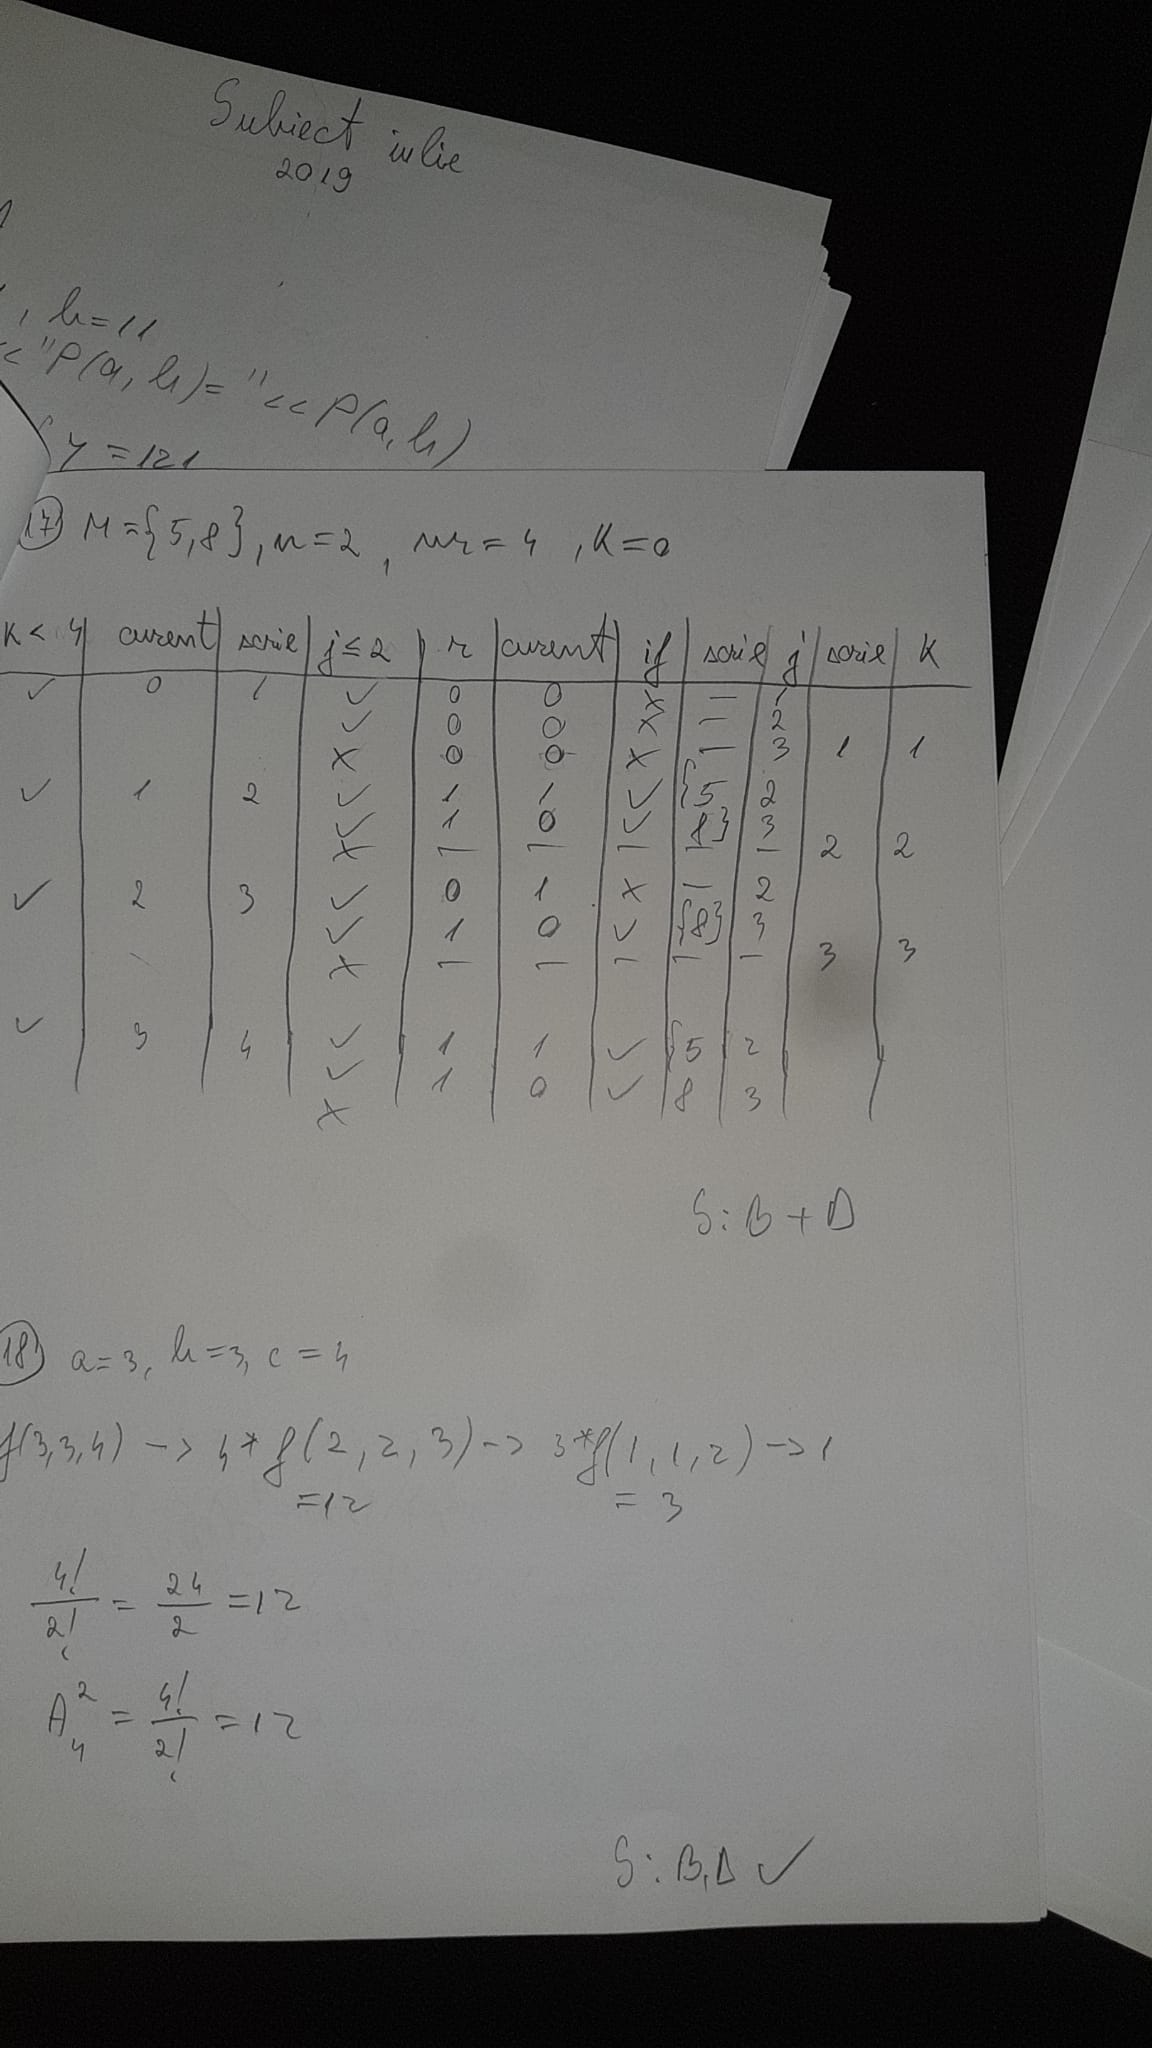 Subiect iulie
2019
, b=11
<< "P(a,b)= "<< P(a,b)
y = 121
17) M={5,8}, n=2, nr=4, K=0
K<4 | curent | scrie | j≤2 | r | curent | if | scrie | j | scrie | K
✓ 0 1 ✓ 0 0 X — 1
✓ 0 0 X — 2
X 0 0 X — 3 1 1
✓ 1 2 ✓ 1 1 ✓ {5 2
✓ 1 0 ✓ 8} 3
X — — — — — 2 2
✓ 2 3 ✓ 0 1 X — 2
✓ 1 0 ✓ {8} 3
X — — — — — 3 3
✓ 3 4 ✓ 1 1 ✓ {5 2
✓ 1 0 ✓ 8 3
X
S: B + D
18) a=3, b=3, c=4
f(3,3,4) -> 4*f(2,2,3) -> 3*f(1,1,2) -> 1
=12 = 3
4!/2! = 24/2 = 12
A₄² = 4!/2! = 12
S: B,D ✓